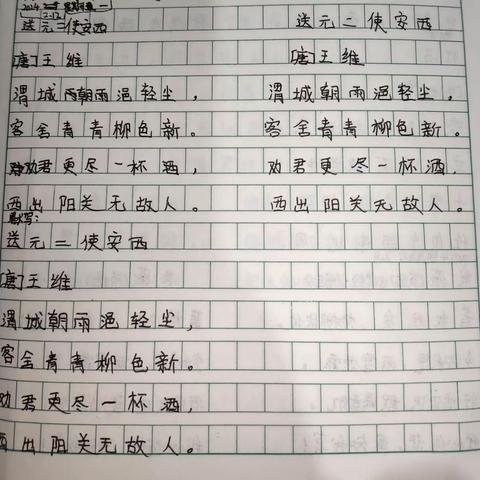 送元二使安西 送元二使安西
[唐]王维 [唐]王维
渭城朝雨浥轻尘， 渭城朝雨浥轻尘，
客舍青青柳色新。 客舍青青柳色新。
劝君更尽一杯酒， 劝君更尽一杯酒，
西出阳关无故人。 西出阳关无故人。
默写：
送元二使安西
[唐]王维
渭城朝雨浥轻尘，
客舍青青柳色新。
劝君更尽一杯酒，
西出阳关无故人。